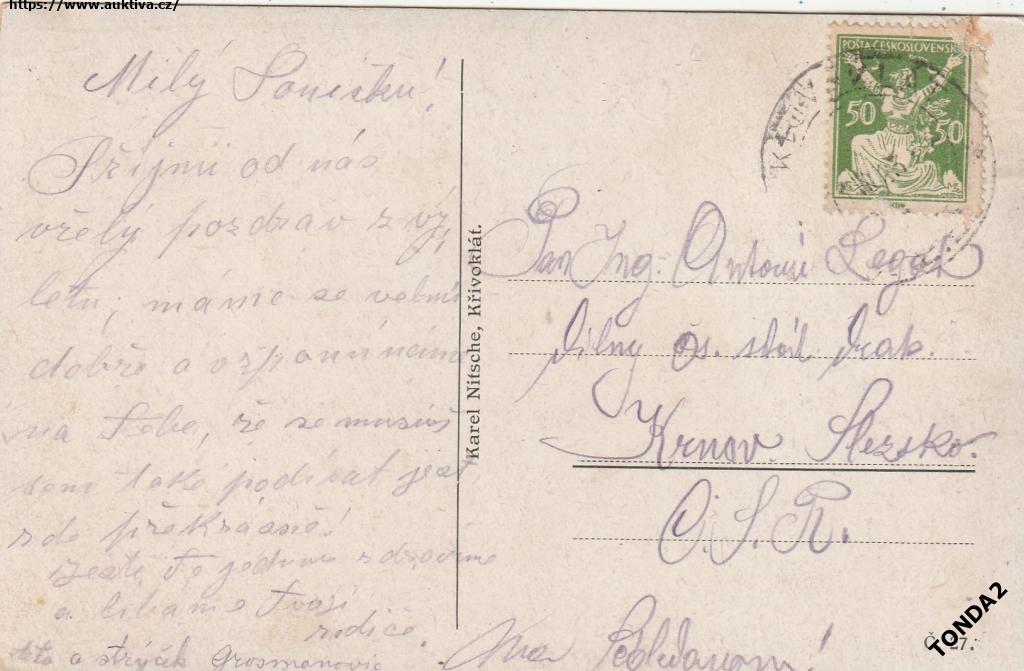 https://www.auktiva.cz/
Milý Toníčku!
Přijmi od nás
vřelý pozdrav z vý
letu, máme se velmi
dobře a vzpomínáme
na Tebe, že se musíš
sem také podívat jest
zde překrásně!
Ještě Tě jednou zdravíme
a líbáme Tvoji
rodiče.
teta a strýček Grosmanovic
Karel Nitsche, Křivoklát.
POŠTA ČESKOSLOVENSKÁ
50 50
Pan Ing. Antonín Legát
dílny čs. stát. drah.
Krnov Slezsko.
Č. S. R.
TONDA2